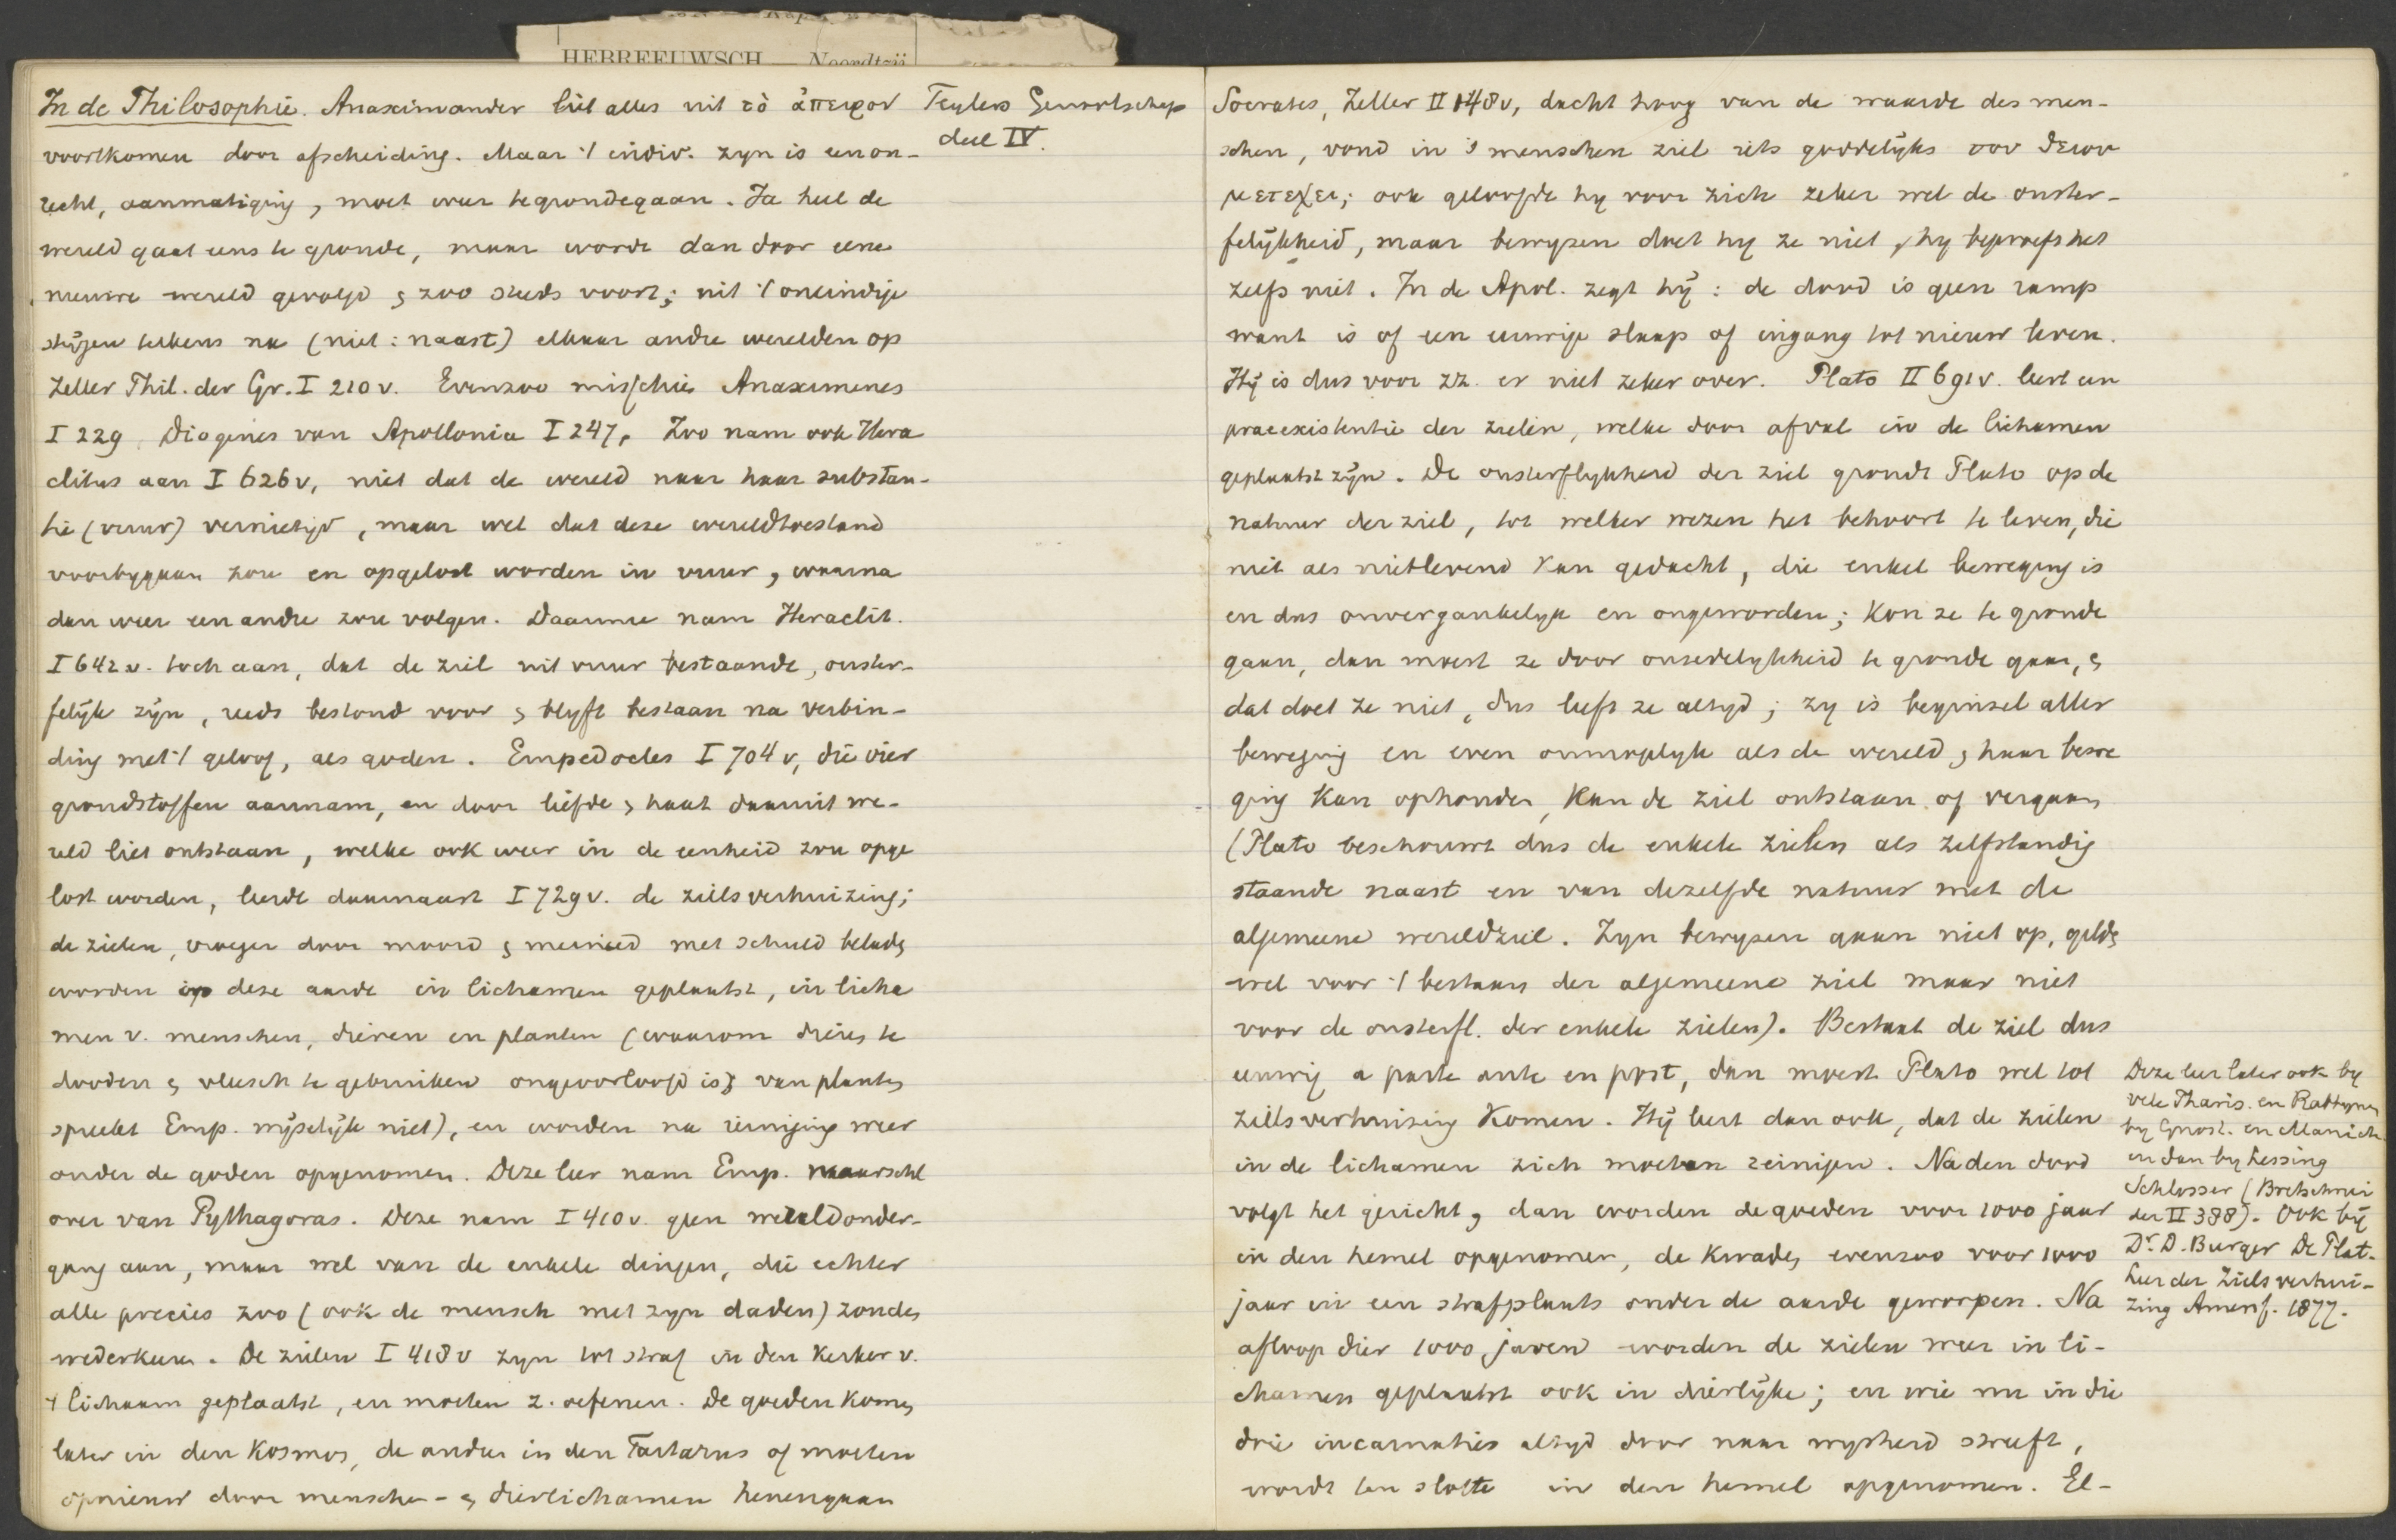 HEBREEUWSCH — Noordtzij
In de Philosophie. Anaximander liet alles uit τὸ ἄπειρον
voortkomen door afscheiding. Maar 't indiv. zyn is een on-
recht, aanmatiging, moet weer tegrondegaan. Ja heel de
wereld gaat eens te gronde, maar wordt dan door eene
nieuwe wereld gevolgd & zoo steeds voort; uit 't oneindige
stijgen telkens na (niet: naast) elkaar andre werelden op
Zeller Phil. der Gr. I 210 v. Evenzoo misschien Anaximenes
I 229, Diogenes van Apollonia I 247. Zoo nam ook Hera
clitus aan I 626 v, niet dat de wereld naar haar substan-
tie (vuur) vernietigd, maar wel dat deze wereldtoestand
voorbygaan zou en opgelost worden in vuur, waarna
dan weer een andre zou volgen. Daarmee nam Heraclit.
I 642 v. toch aan, dat de ziel uit vuur bestaande, onster-
felijk zijn, reeds bestond voor & blyft bestaan na verbin-
ding met 't geloof, als goden. Empedocles I 704 v, die vier
grondstoffen aannam, en door liefde & haat daaruit we-
reld liet ontstaan, welke ook weer in de eenheid zou opge
lost worden, leerde daarnaast I 729 v. de zielsverhuizing;
de zielen, vroeger door moord & meineed met schuld belade
worden op deze aarde in lichamen geplaatst, in licha
men v. menschen, dieren en planten (waarom dieren te
dooden & vleesch te gebruiken ongeoorloofd is; van planten
spreekt Emp. mijselijk niet), en worden na reiniging weer
onder de goden opgenomen. Deze leer nam Emp. waarschl
over van Pythagoras. Deze nam I 410 v. geen wereldonder-
gang aan, maar wel van de enkele dingen, die echter
alle precies zoo (ook de mensch met zyn daden) zonden
wederkeeren. De zielen I 418 v zyn tot straf in den kerker v.
't lichaam geplaatst, en moeten z. oefenen. De goeden komen
later in den Kosmos, de andere in den Tartarus of moeten
opnieuw door menschen- & dierlichamen henengaan
Teylers Genootschap
deel IV.
Socrates, Zeller II 148 v, dacht hoog van de waarde des men-
schen, vond in 's menschen ziel iets goddelijks του θειου
μετεχει; ook geloofde hy voor zich zeker wel de onster-
felijkheid, maar bewyzen doet hy ze niet, hy beproeft het
zelfs niet. In de Apol. zegt hij: de dood is geen ramp
want is of een eeuwige slaap of ingang tot nieuw leven.
Hij is dus voor zz. er niet zeker over. Plato II 691 v. leert een
praeexistentie der zielen, welke door afval in de lichamen
geplaatst zijn. De onsterflykheid der ziel grondt Plato op de
natuur der ziel, tot welker wezen het behoort te leven, die
niet als nietlevend kan gedacht, die enkel beweging is
en dus onvergankelyk en ongeworden; kon ze te gronde
gaan, dan moest ze door onzedelykheid te gronde gaan, &
dat doet ze niet, dus leeft ze altyd; zy is beginsel aller
beweging en even onmogelyk als de wereld & haar bewe
ging kan ophouden, kan de ziel ontstaan of vergaan
(Plato beschouwt dus de enkele zielen als zelfstandig
staande naast en van dezelfde natuur met de
algemeene wereldziel. Zyn bewyzen gaan niet op, gelden
wel voor 't bestaan der algemeene ziel maar niet
voor de onsterfl. der enkele zielen). Bestaat de ziel dus
eeuwig a parte ante en post, dan moest Plato wel tot
zielsverhuizing komen. Hij leert dan ook, dat de zielen
in de lichamen zich moeten reinigen. Na den dood
volgt het gericht, dan worden de goeden voor 1000 jaar
in den hemel opgenomen, de kwaden evenzoo voor 1000
jaar in een strafplaats onder de aarde geworpen. Na
afloop dier 1000 jaren worden de zielen weer in li-
chamen geplaatst ook in dierlijke; en wie nu in die
drie incarnaties altyd door naar wysheid streeft,
wordt ten slotte in den hemel opgenomen. El-
Deze leer later ook by
vele Pharis. en Rabbynen
by Gnost. en Manich.
en dan by Lessing
Schlosser (Bretschnei
der II 388). Ook bij
Dr. D. Burger De Plat.
Leer der Zielsverhui-
zing Amersf. 1877.